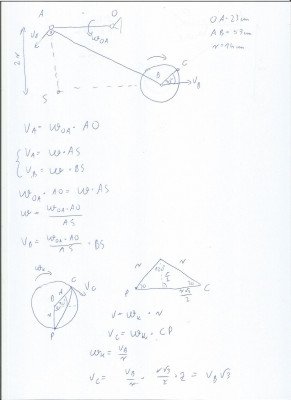 A O
ω_OA
V_A
OA = 27 cm
AB = 59 cm
r = 14 cm
2r
S
B C
V_B
V_A = ω_OA · AO
V_A = ω · AS
V_B = ω · BS
ω_OA · AO = ω · AS
ω = ω_OA · AO / AS
V_B = ω_OA · AO / AS · BS
ω_k
C V_C
B
P
r r
P C
V = ω_k · r
V_C = ω_k · CP
ω_k = V_B / r
V_C = V_B / r · r√3 / 2 · 2 = V_B √3